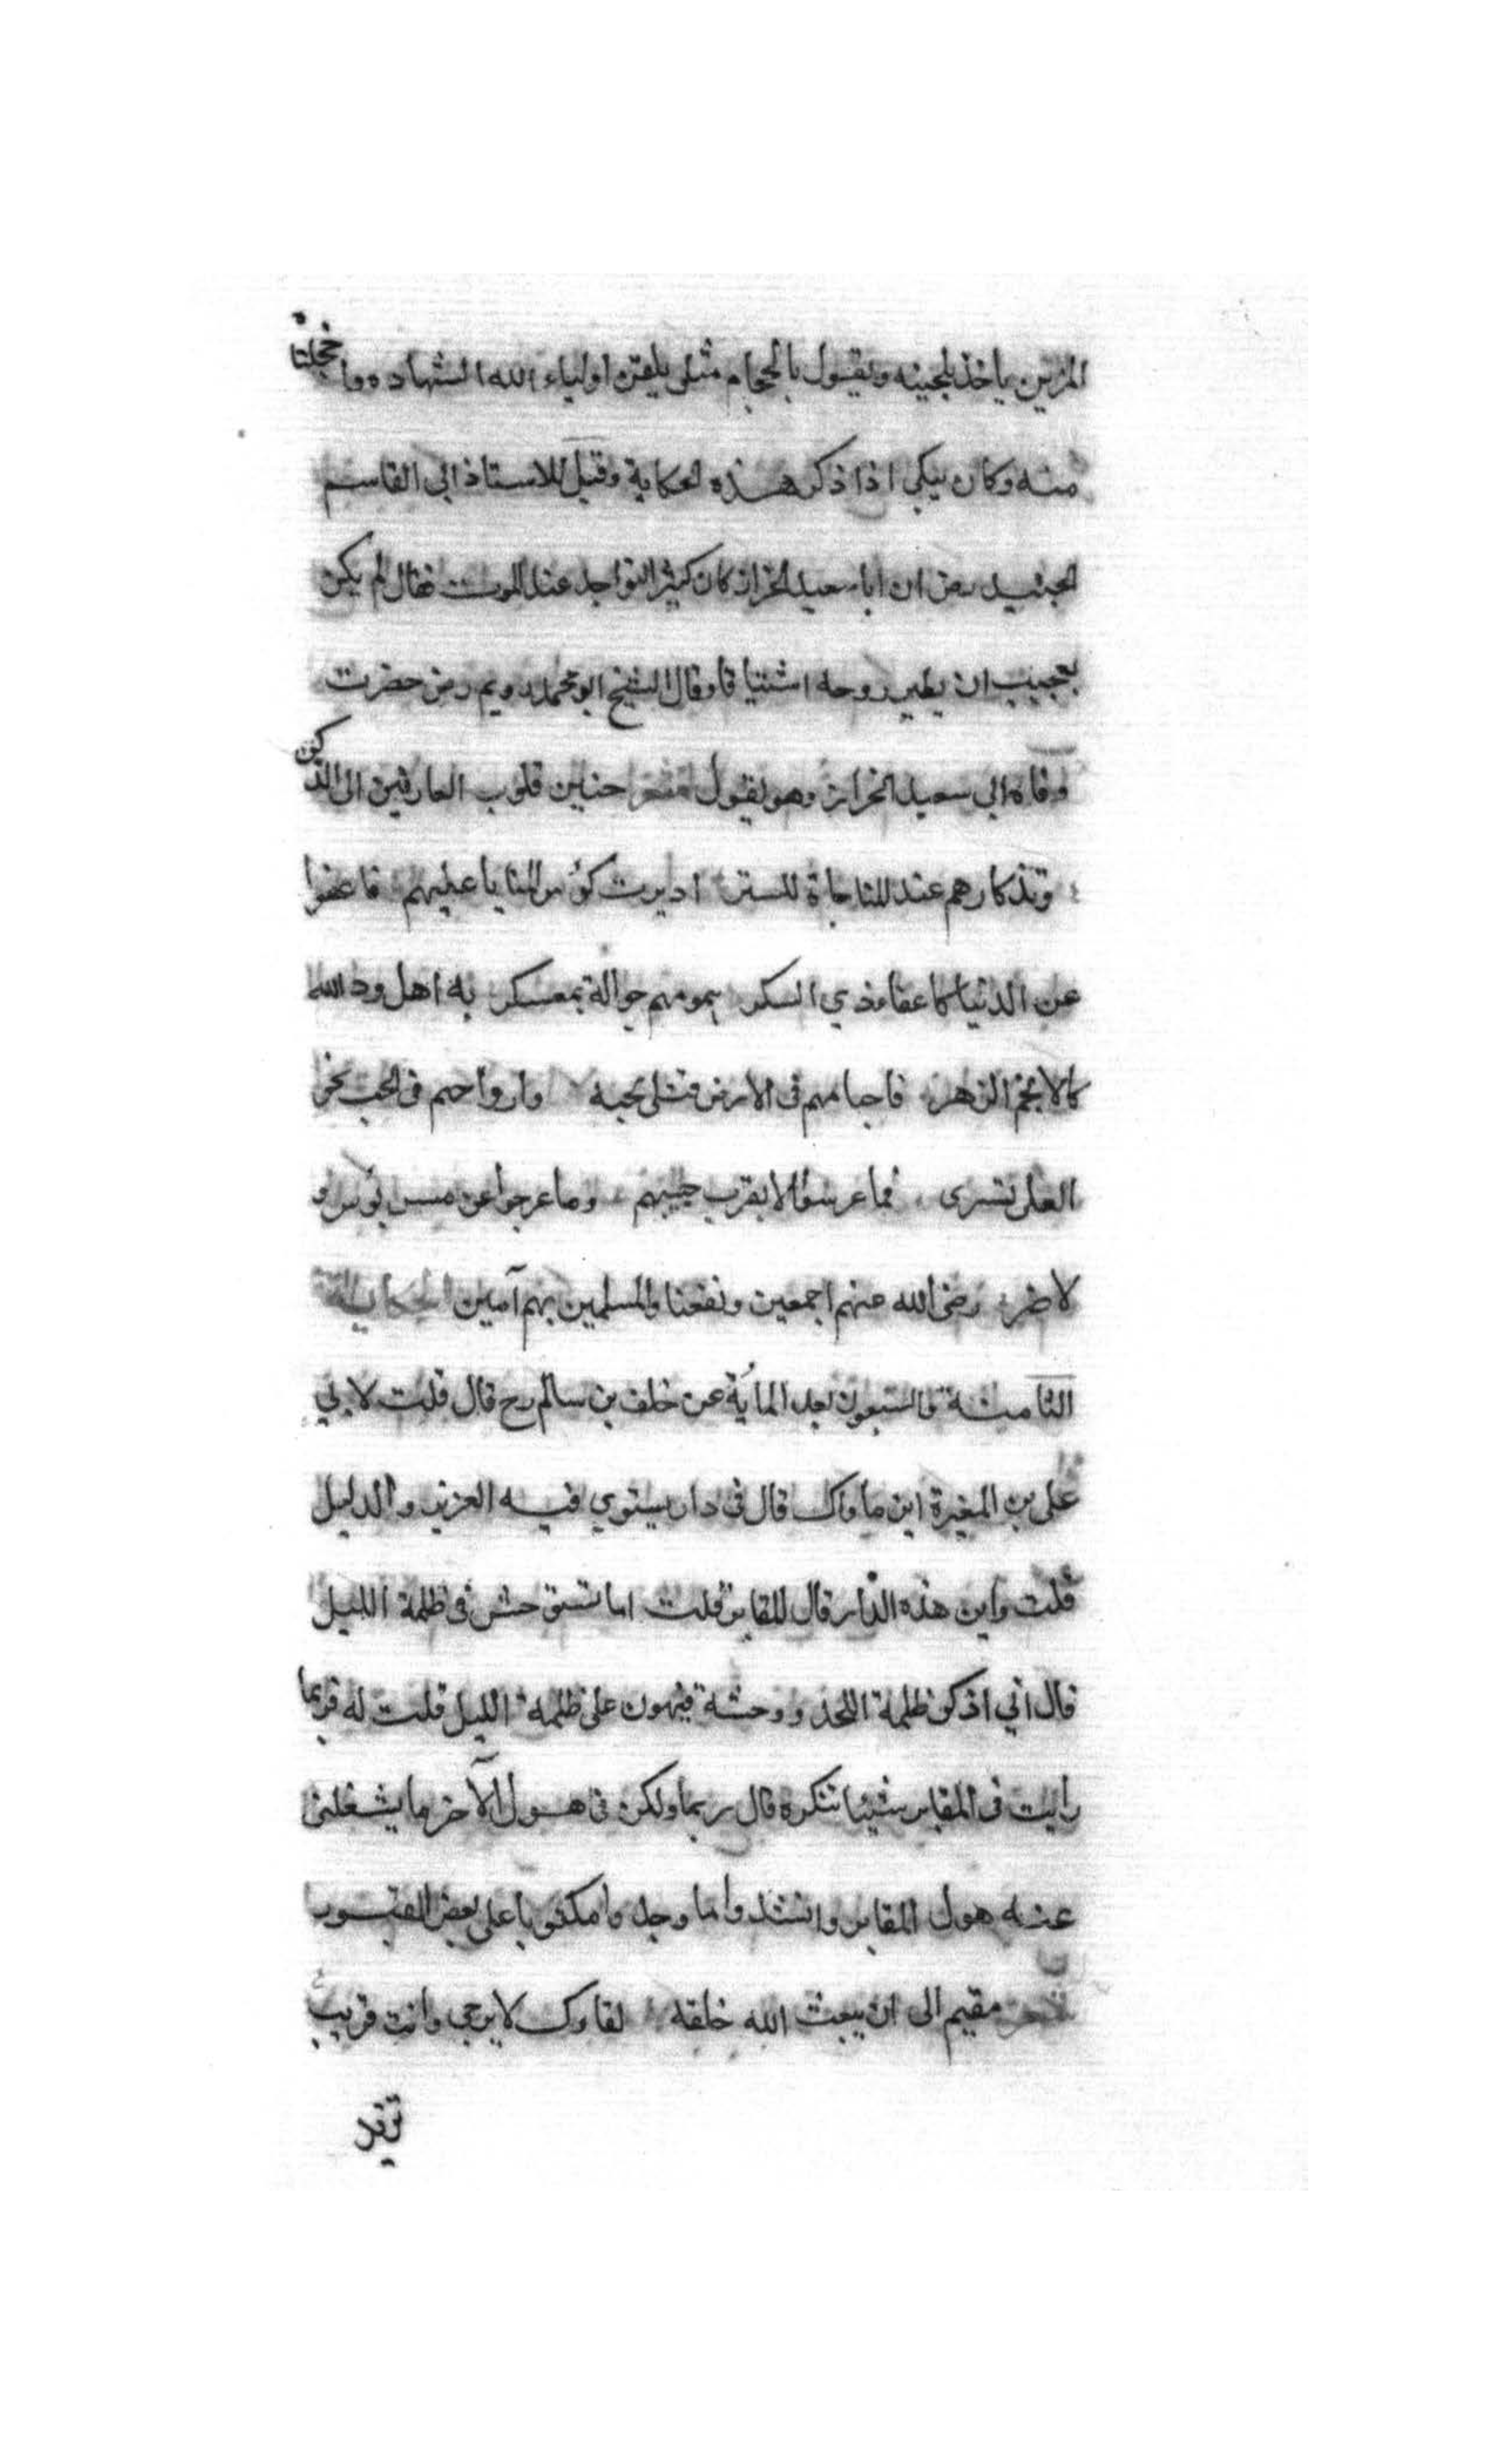 المزين ياخذ بلحيته ويقول يا لحجام مثلي يلقن اولياء الله الشهاده وا خجلتا
منه وكان يبكي اذا ذكر هذه الحكاية وقيل للاستاذ ابي القاسم
الجنيد رضي ان ابا سعيد الخراز كان كثير التواجد عند الموت فقال لم يكن
بعجيب ان يطير روحه اشتياقا وقال الشيخ ابو محمد رويم رضي حضرت
وفاة ابي سعيد الخراز وهو يقول حنين قلوب العارفين الى الذكر
وتذكارهم عند المناجاة للستر اديرت كؤس المنايا عليهم فاغفوا
عن الدنيا كاغفاء ذي السكر همومهم جوالة بمعسكر به اهل ود الله
كالانجم الزهر فاجسامهم في الارض قتلى بحبه وارواحهم في الحجب نحو
العلى تسرى فما عرسوا الا بقرب حبيبهم وما عرجوا عن مس بؤس و
لا ضر رضي الله عنهم اجمعين ونفعنا والمسلمين بهم آمين الحكاية
الثامنة والسبعون بعد المائة عن خلف بن سالم رح قال قلت لابي
علي بن المغيرة اين ماواك قال في دار يستوي فيه العزيز والذليل
قلت واين هذه الدار قال المقابر قلت اما تستوحش في ظلمة الليل
قال اني اذكر ظلمة اللحد ووحشة فيهون علي ظلمة الليل قلت له فربما
رايت في المقابر شيئا تنكره قال ربما ولكن في هول الآخر ما يشغلني
عنه هول المقابر وانشدوا ما وجد وا مكتوبا على بعض القبور
مقيم الى ان يبعث الله خلقه لقاوك لا يرجى وانت قريب